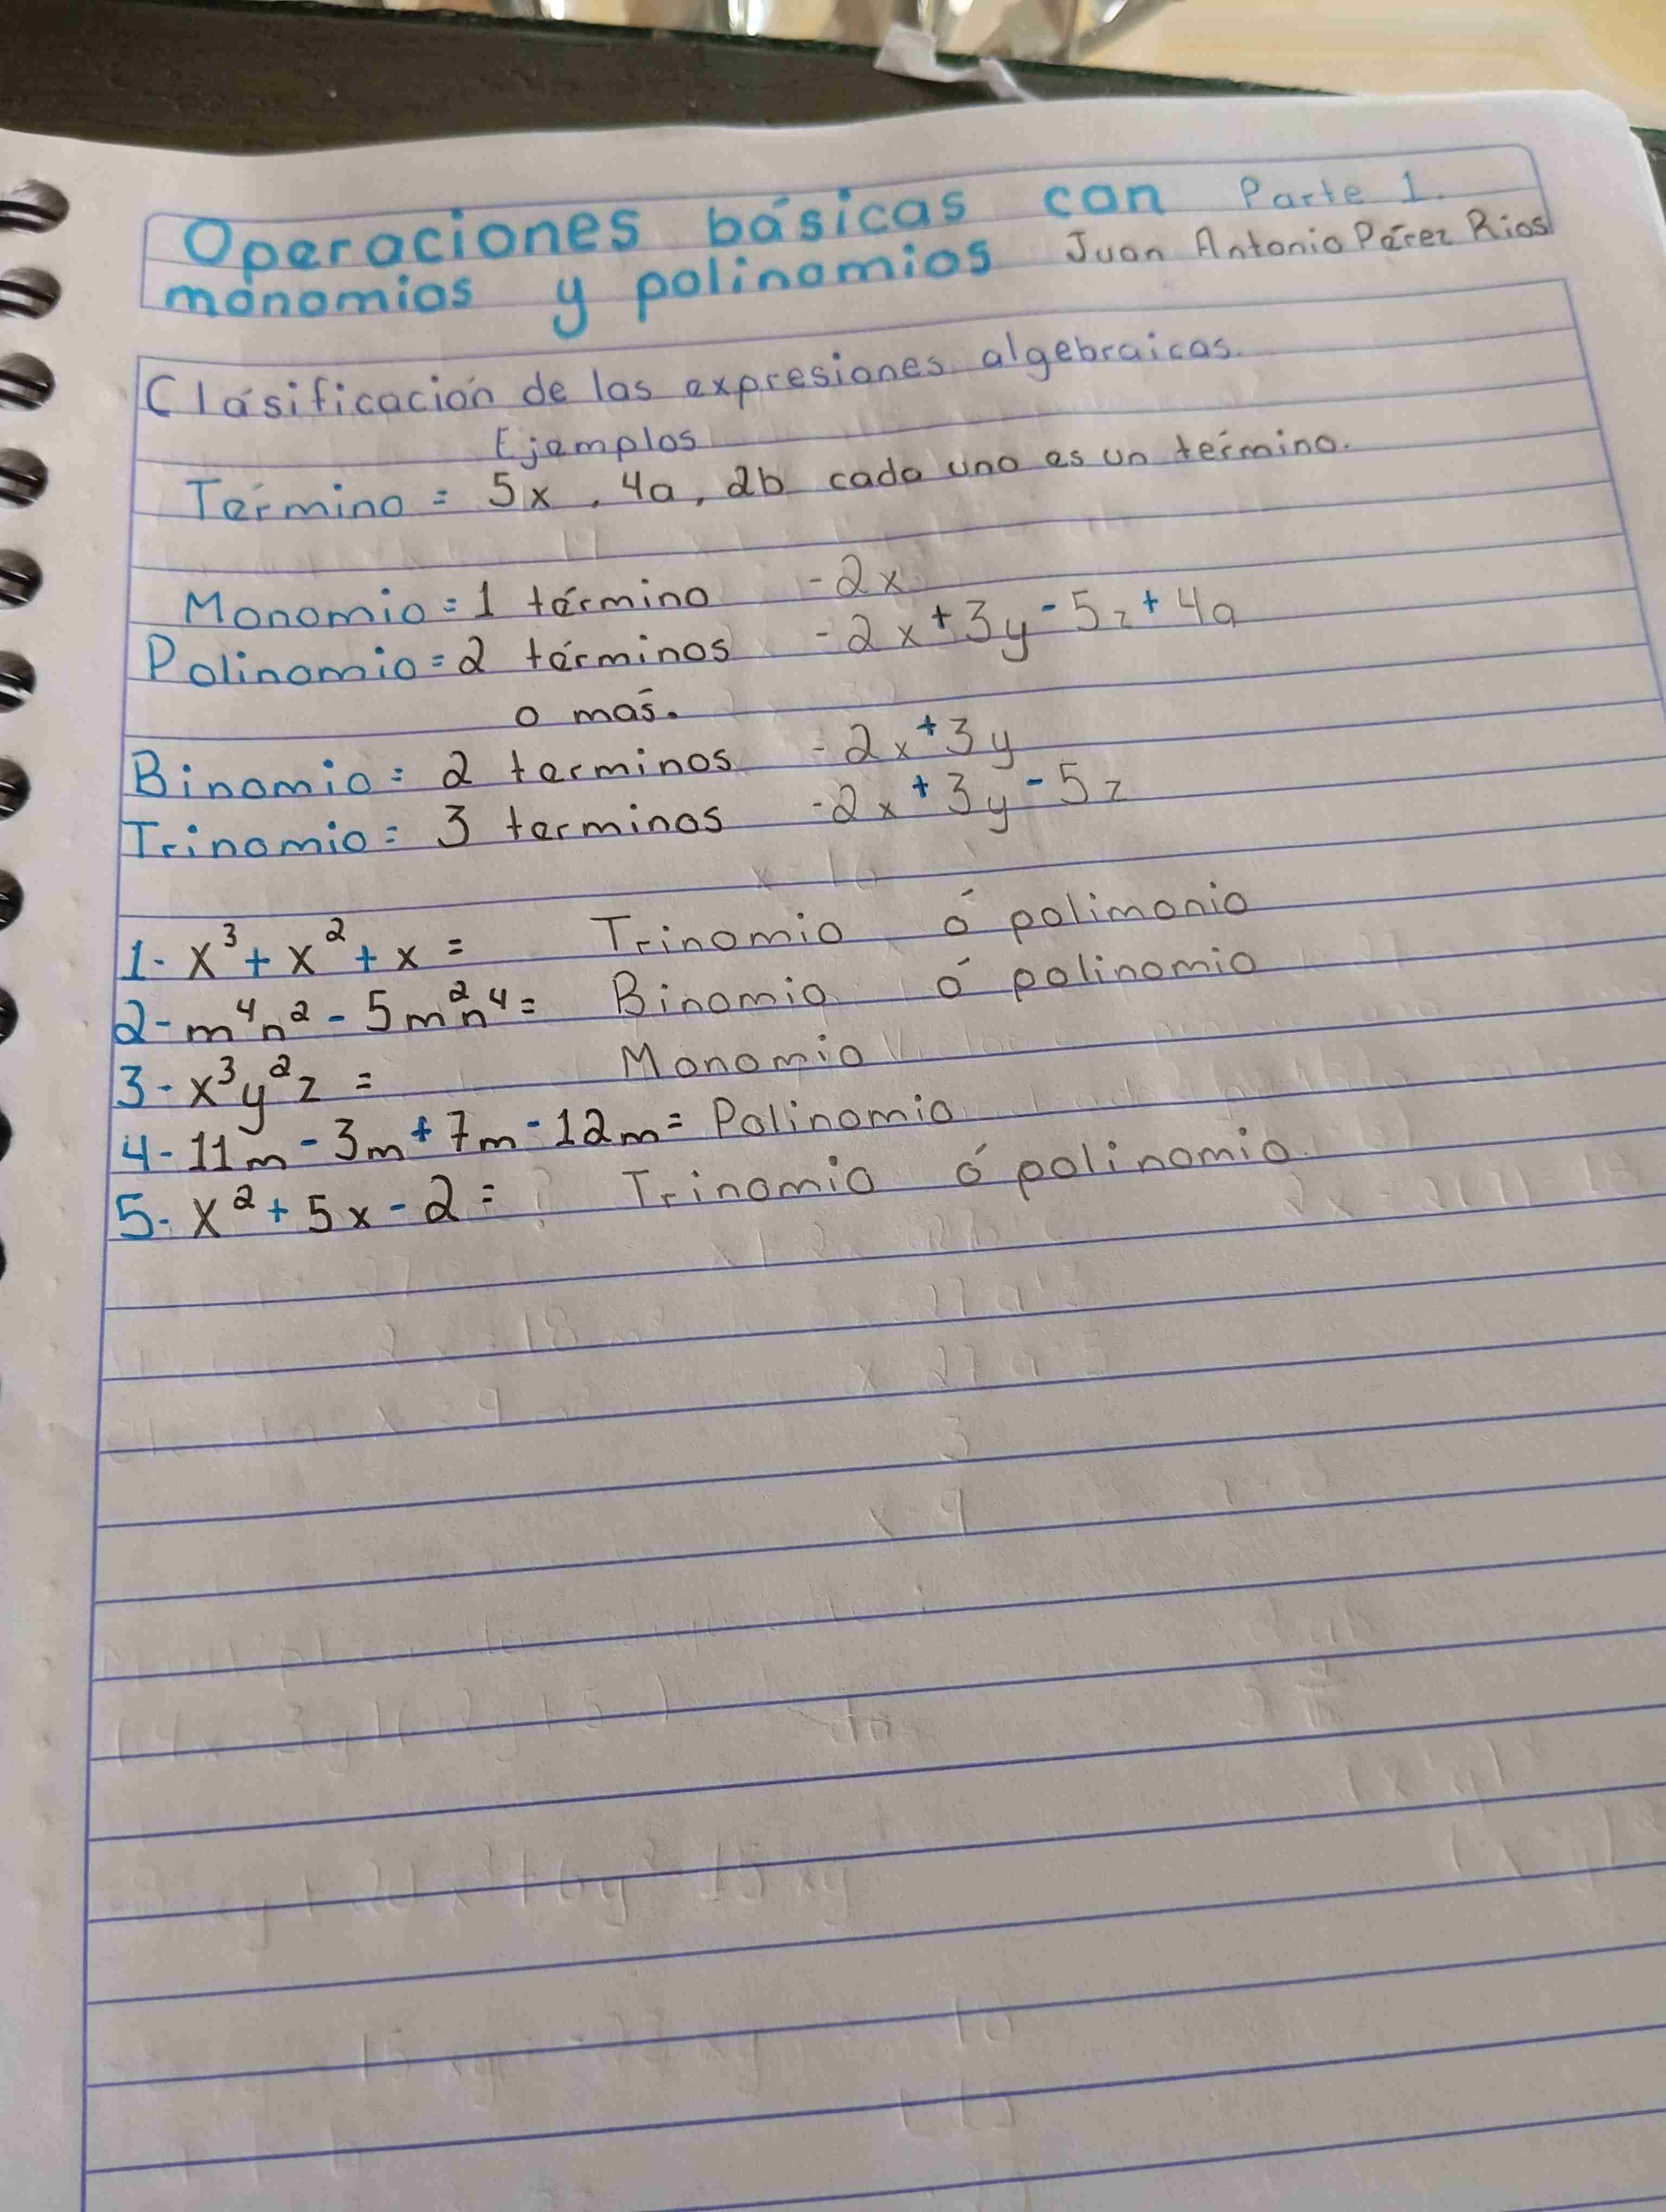 Operaciones básicas con Parte 1.
monomios y polinomios Juan Antonio Pérez Rios
Clasificación de las expresiones algebraicas.
Ejemplos
Término = 5x, 4a, 2b cada uno es un término.
Monomio = 1 término -2x
Polinomio = 2 términos -2x + 3y - 5z + 4a
o más.
Binomio = 2 terminos -2x + 3y
Trinomio = 3 terminos -2x + 3y - 5z
1- x³ + x² + x = Trinomio ó polimonio
2- m⁴n² - 5m²n⁴ = Binomio ó polinomio
3- x³y²z = Monomio
4- 11m - 3m + 7m - 12m = Polinomio
5- x² + 5x - 2 = Trinomio ó polinomio